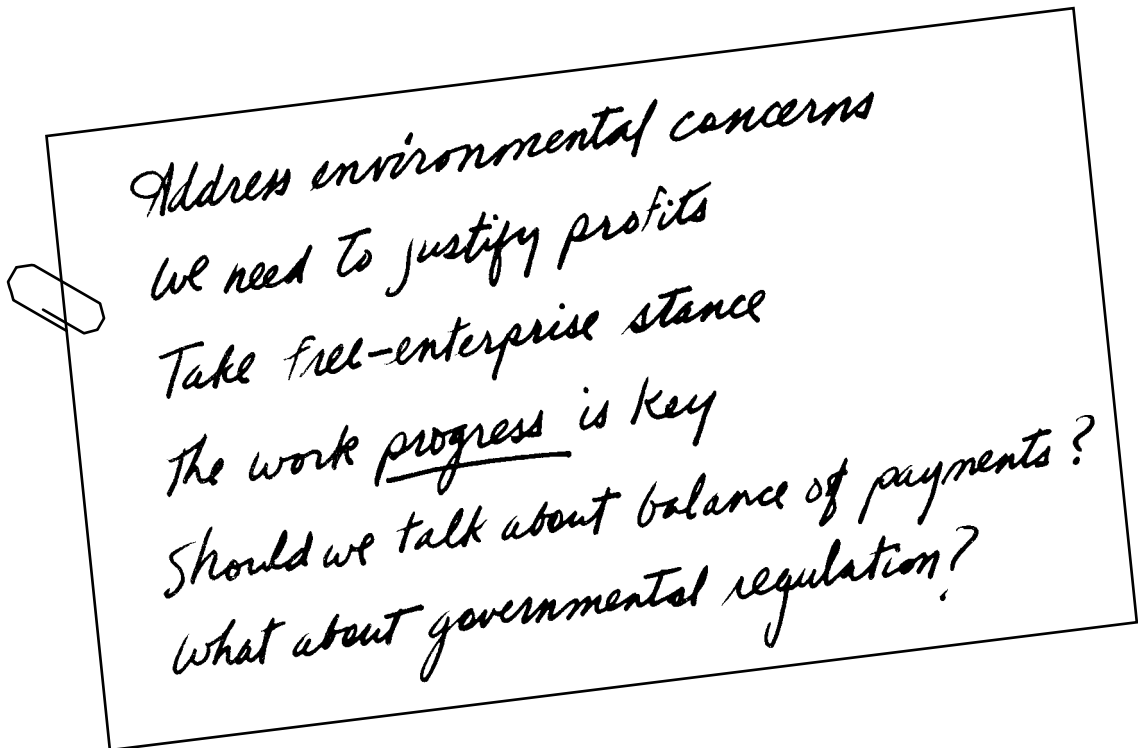 Address environmental concerns
We need to justify profits
Take free-enterprise stance
The work progress is key
Should we talk about balance of payments?
What about governmental regulation?